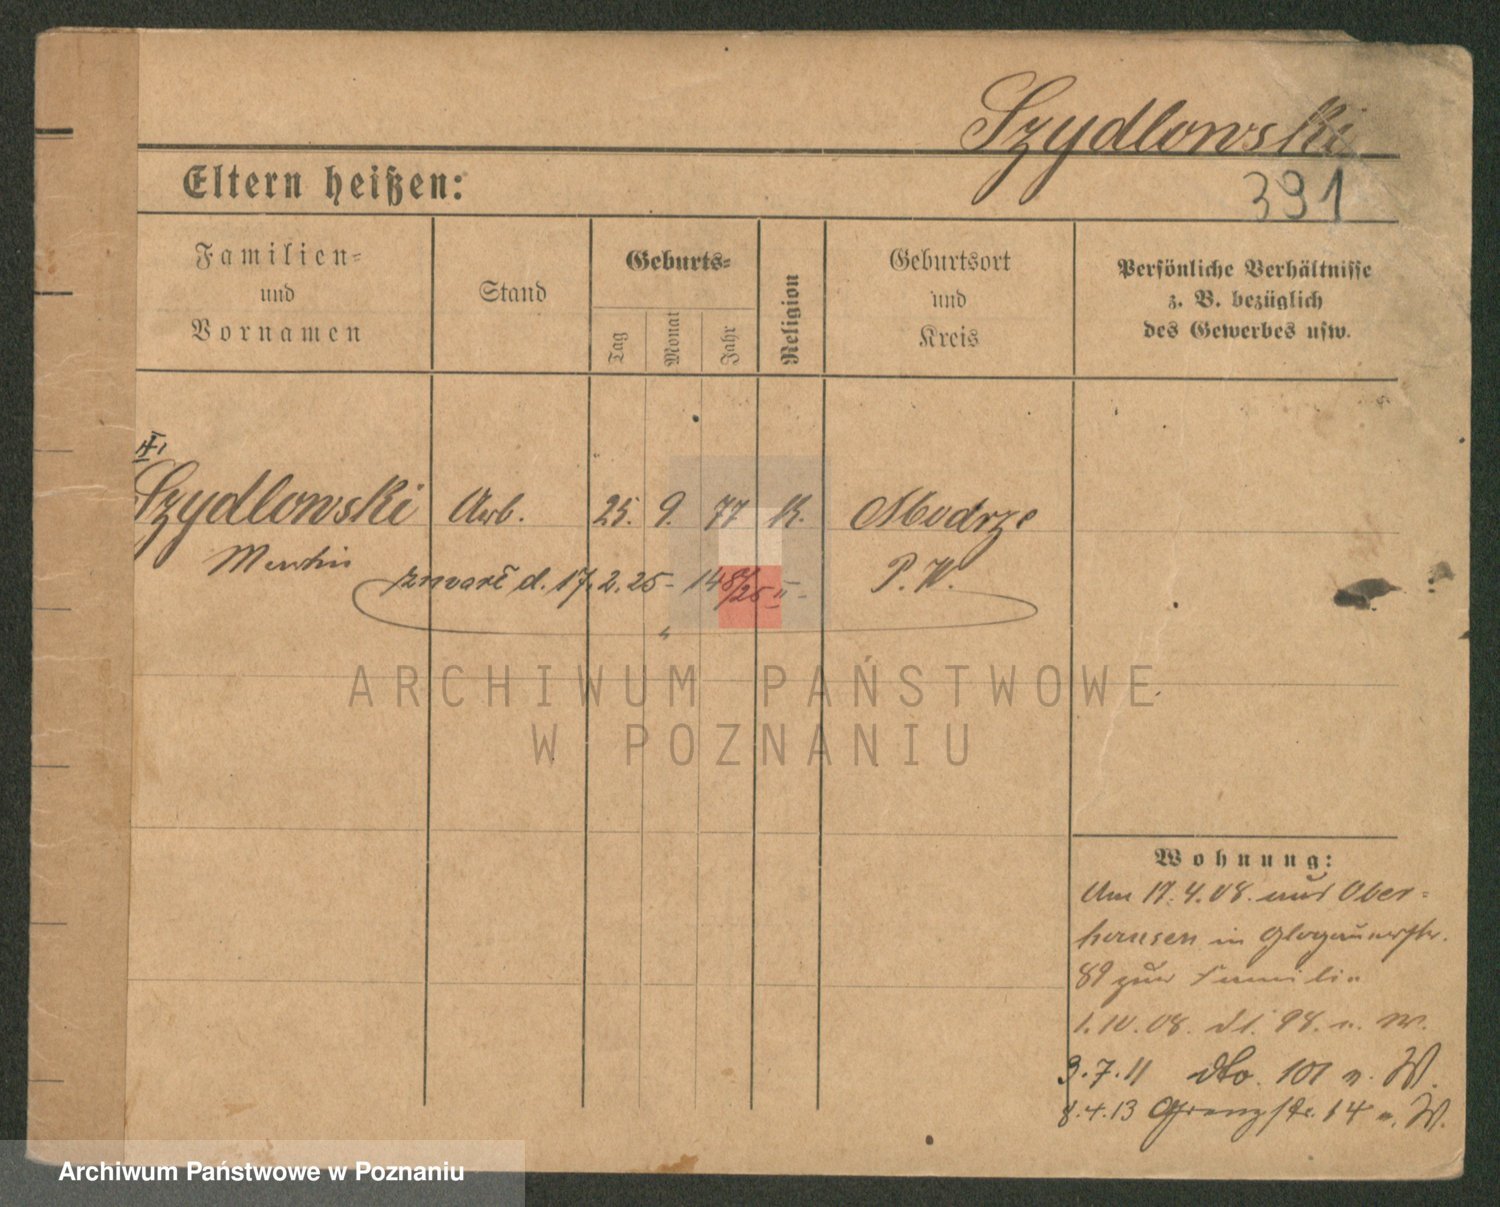 Szydlowski
391
Eltern heißen:
Familien-
und
Vornamen
Stand
Geburts-
Tag
Monat
Jahr
Religion
Geburtsort
und
Kreis
Persönliche Verhältnisse
z. B. bezüglich
des Gewerbes usw.
Szydlowski Arb. 25. 9. 77 K. Modrze
Martin P. W.
zmarł d. 17.2.25 - 148/25 II -
ARCHIWUM PAŃSTWOWE
W POZNANIU
Wohnung:
Am 17.4.08. aus Ober-
hausen in Glogauerstr.
89 zur Familie
1.10.08. dt. 98. n. W.
3.7.11 dto. 101 n. W.
8.4.13 Grenzstr. 14 n. W.
Archiwum Państwowe w Poznaniu